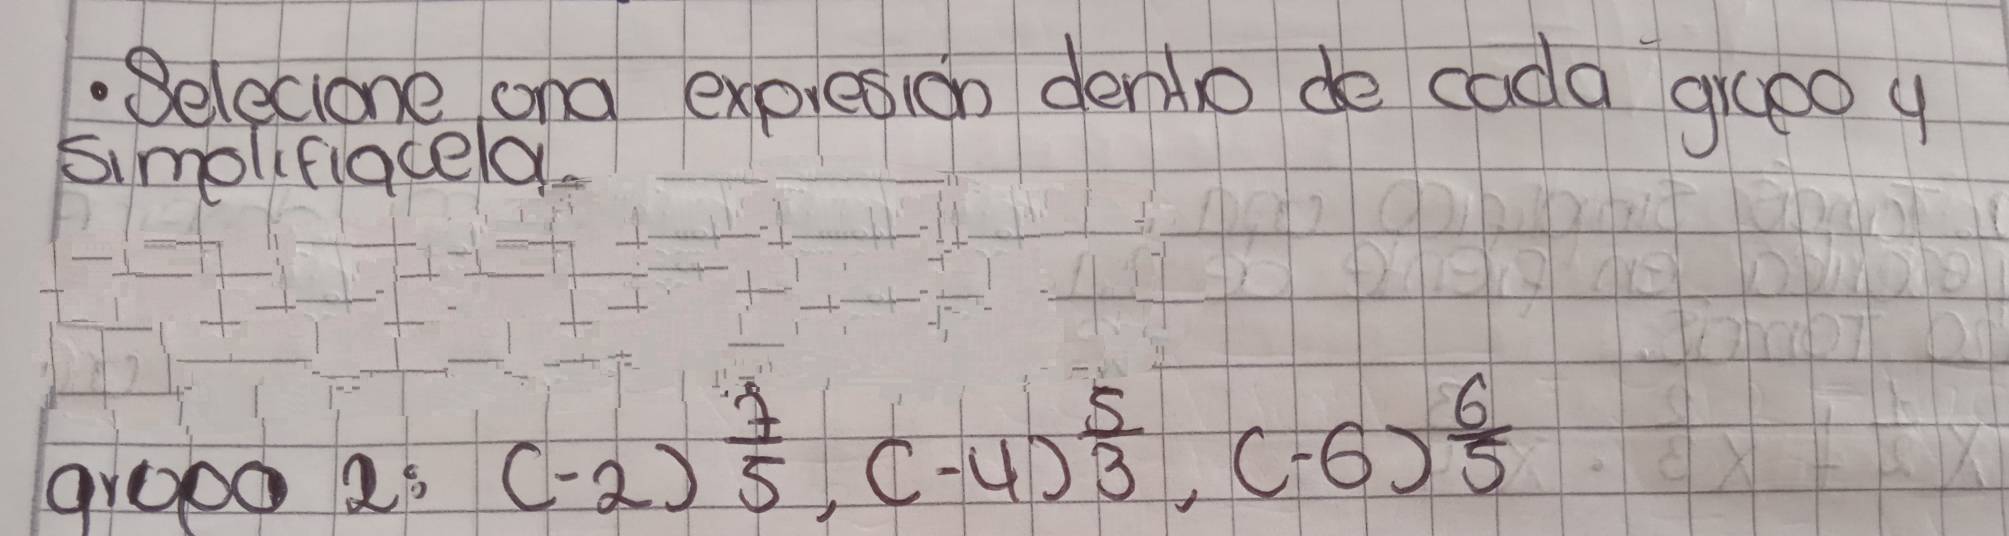 • Selecione una expresión dentro de cada grupo y
simplifiquela.
grupo 2: (-2)^7/5, (-4)^5/3, (-6)^6/5